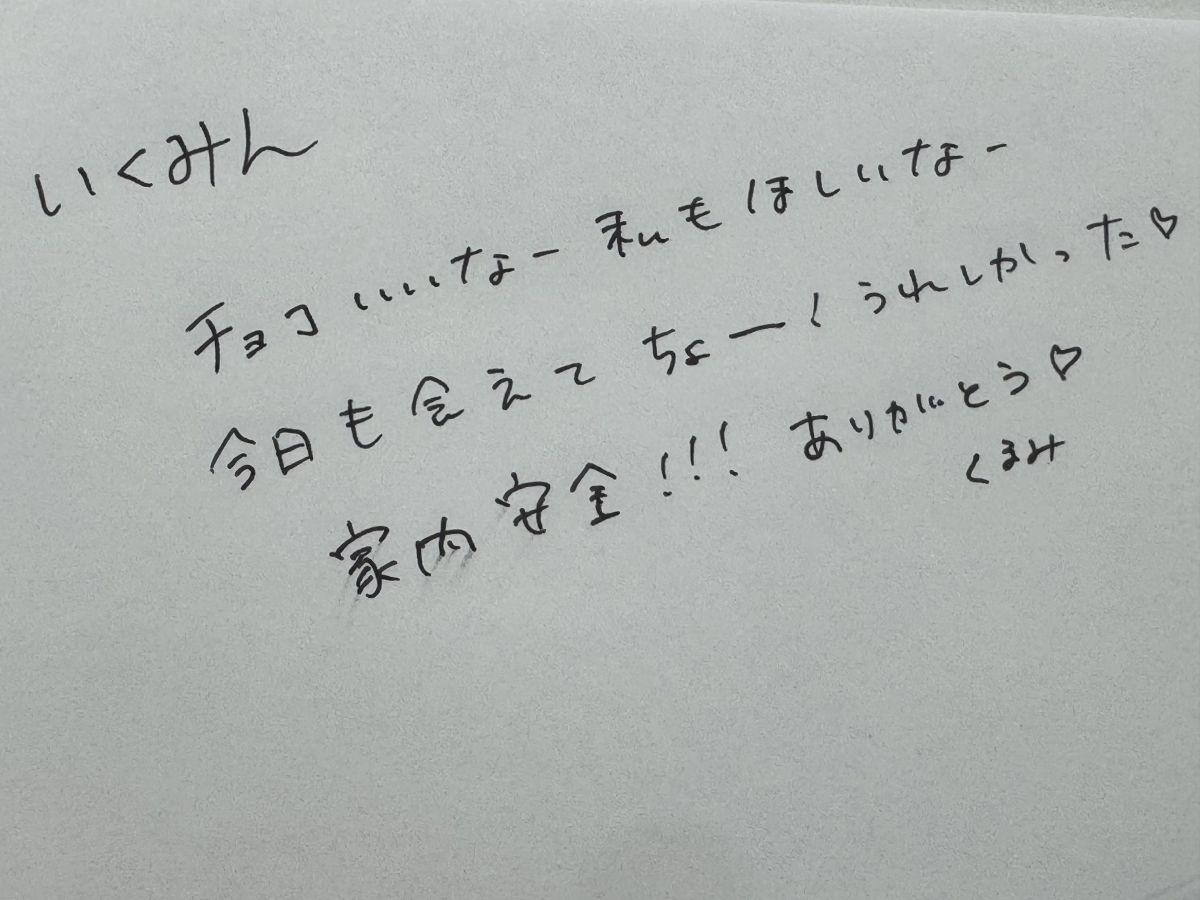 いくみん
チョコいいなー 私もほしいなー
今日も会えて ちょー! うれしかった♡
家内安全!!! ありがとう♡
くるみ